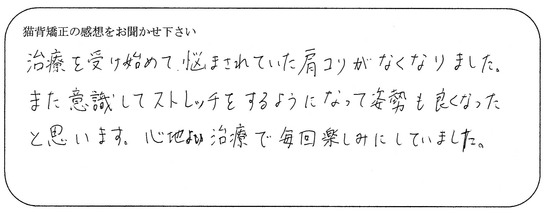 猫背矯正の感想をお聞かせ下さい
治療を受け始めて、悩まされていた肩コリがなくなりました。
また意識してストレッチをするようになって姿勢も良くなった
と思います。心地よい治療で毎回楽しみにしていました。